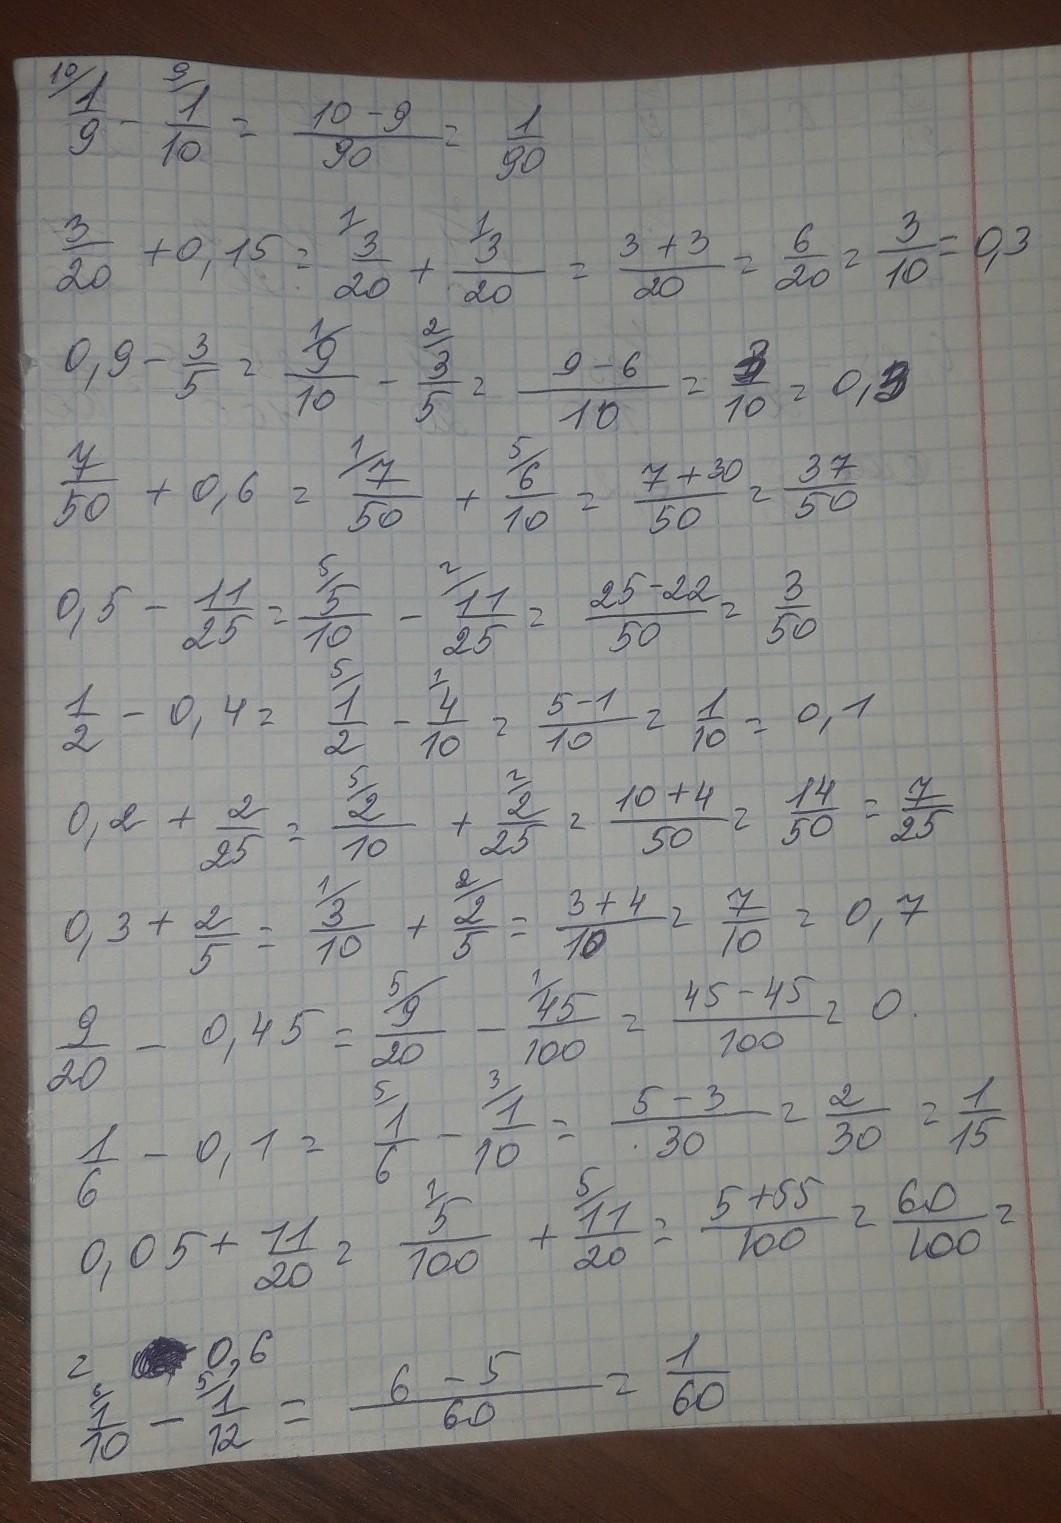 10/ 1/9 - 9/ 1/10 = (10 - 9)/90 = 1/90
3/20 + 0,15 = 1/ 3/20 + 1/ 3/20 = (3 + 3)/20 = 6/20 = 3/10 = 0,3
0,9 - 3/5 = 1/ 9/10 - 2/ 3/5 = (9 - 6)/10 = 3/10 = 0,3
7/50 + 0,6 = 1/ 7/50 + 5/ 6/10 = (7 + 30)/50 = 37/50
0,5 - 11/25 = 5/ 5/10 - 2/ 11/25 = (25 - 22)/50 = 3/50
1/2 - 0,4 = 5/ 1/2 - 1/ 4/10 = (5 - 1)/10 = 1/10 = 0,1
0,2 + 2/25 = 5/ 2/10 + 2/ 2/25 = (10 + 4)/50 = 14/50 = 7/25
0,3 + 2/5 = 1/ 3/10 + 2/ 2/5 = (3 + 4)/10 = 7/10 = 0,7
9/20 - 0,45 = 5/ 9/20 - 1/ 45/100 = (45 - 45)/100 = 0.
1/6 - 0,1 = 5/ 1/6 - 3/ 1/10 = (5 - 3)/30 = 2/30 = 1/15
0,05 + 11/20 = 1/ 5/100 + 5/ 11/20 = (5 + 55)/100 = 60/100 =
= 0,6
6/ 1/10 - 5/ 1/12 = (6 - 5)/60 = 1/60